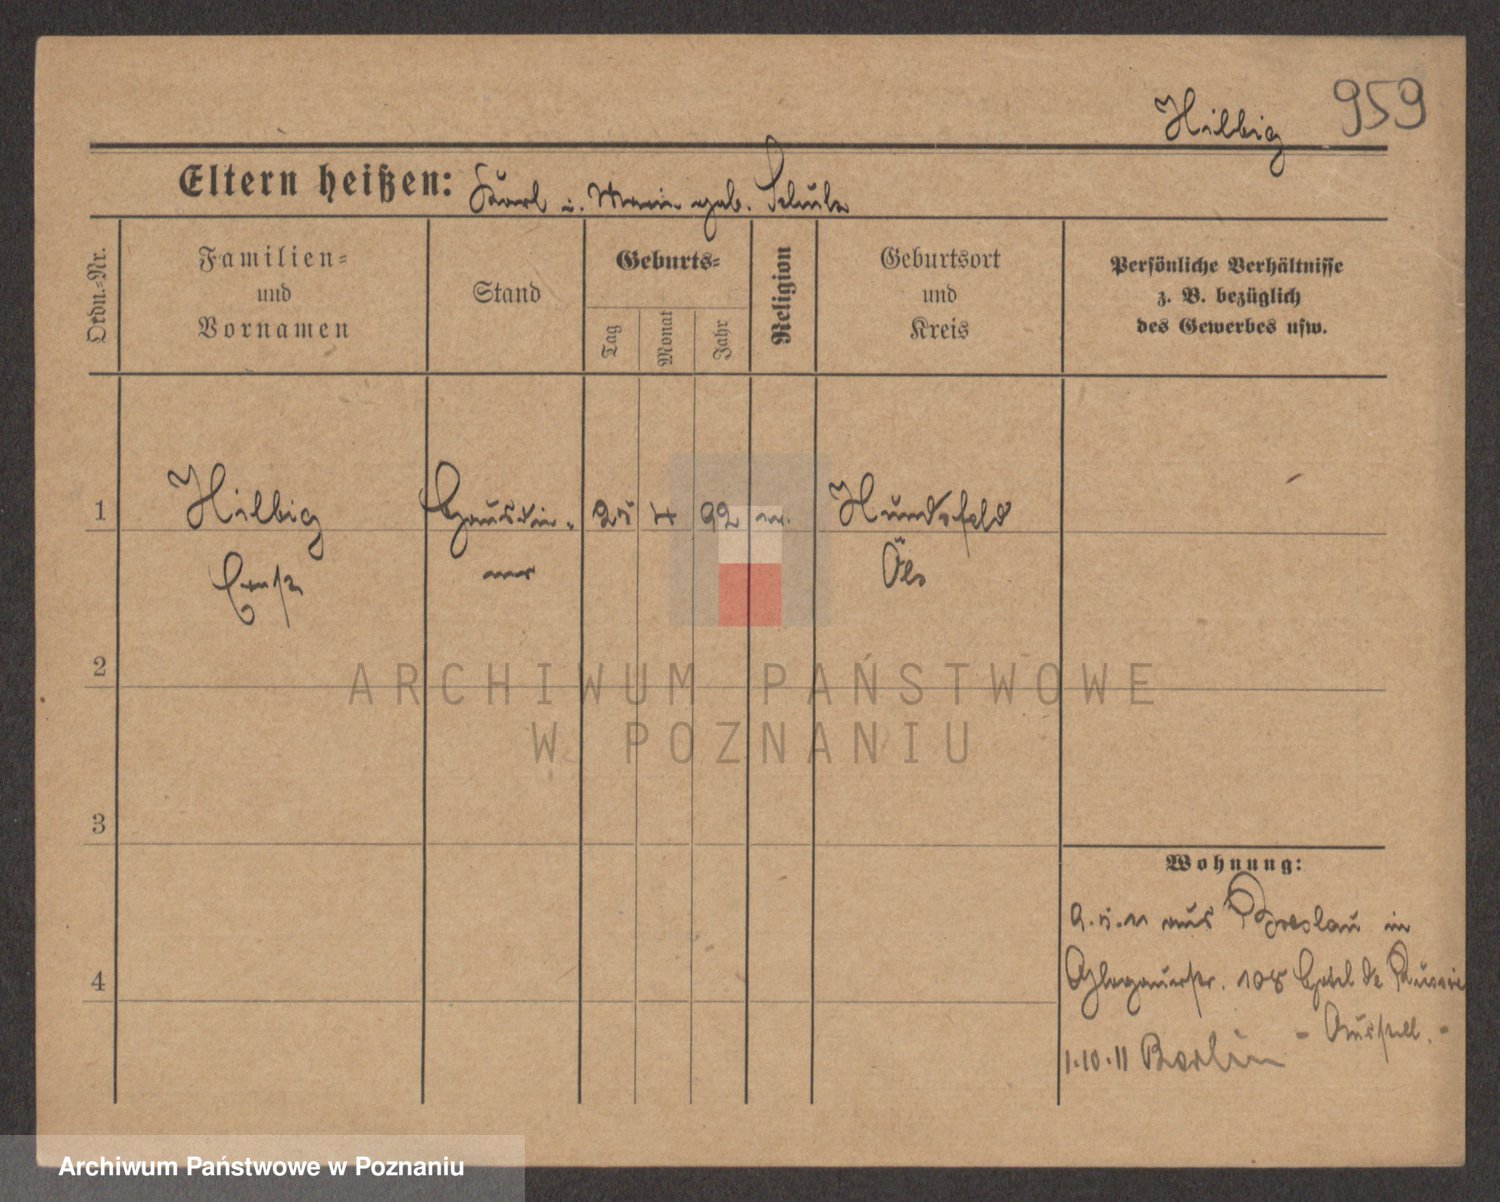 Hilbig 959
Eltern heißen: Karl u. Marie geb. Schulz
Ordn.-Nr.
Familien-
und
Vornamen
Stand
Geburts-
Tag
Monat
Jahr
Religion
Geburtsort
und
Kreis
Persönliche Verhältnisse
z. B. bezüglich
des Gewerbes usw.
1 Hilbig Hausdie- 25 4 92 Hundsfeld
Ernst ner Öls
2
3
4
Wohnung:
9.5.11 aus Breslau in
Glogauerstr. 108 Hotel de Russie
- Ausstell. -
1.10.11 Berlin
ARCHIWUM PAŃSTWOWE
W POZNANIU
Archiwum Państwowe w Poznaniu